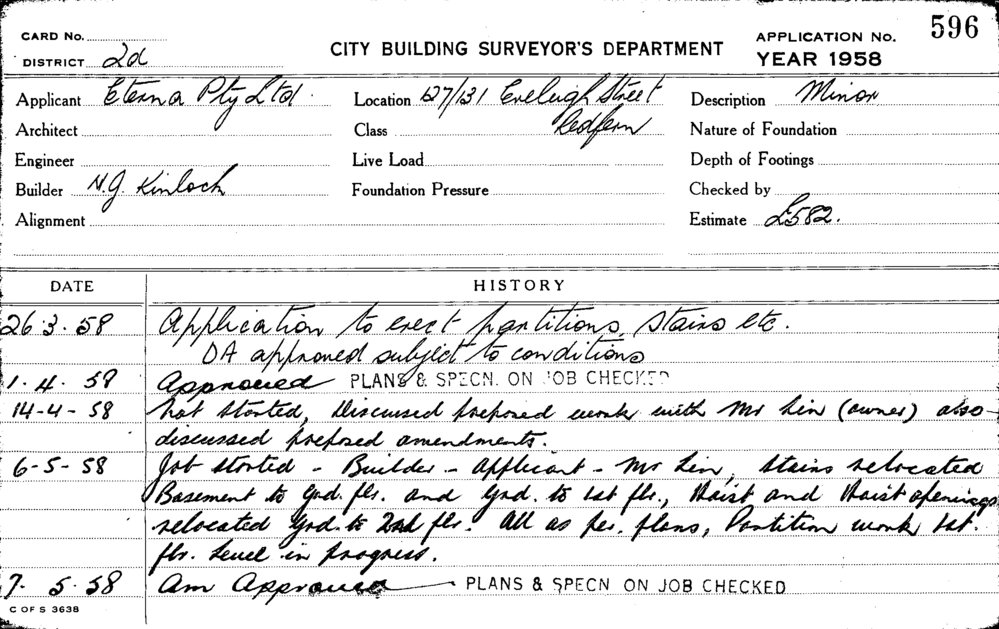 CARD No.
DISTRICT 2d
CITY BUILDING SURVEYOR'S DEPARTMENT
APPLICATION No. 596
YEAR 1958
Applicant Eterna Pty Ltd.
Location 127/131 Eveleigh Street
Redfern
Description Minor
Architect
Class
Nature of Foundation
Engineer
Live Load
Depth of Footings
Builder N.J. Kinloch
Foundation Pressure
Checked by
Alignment
Estimate £582.
DATE
HISTORY
26.3.58 Application to erect partitions, stairs etc.
DA approved subject to conditions
1.4.58 Approved PLANS & SPECN. ON JOB CHECKED
14-4-58 Not started, Discussed proposed work with Mr Lin (owner) also
discussed proposed amendments.
6-5-58 Job started - Builder - Applicant - Mr Lin, Stairs relocated
Basement to Grd. flr. and Grd. to 1st flr., Hoist and Hoist openings
relocated Grd. to 2nd flr. All as per. plans, Partition work 1st.
flr. level in progress.
7.5.58 Am Approved PLANS & SPECN ON JOB CHECKED
C OF S 3638